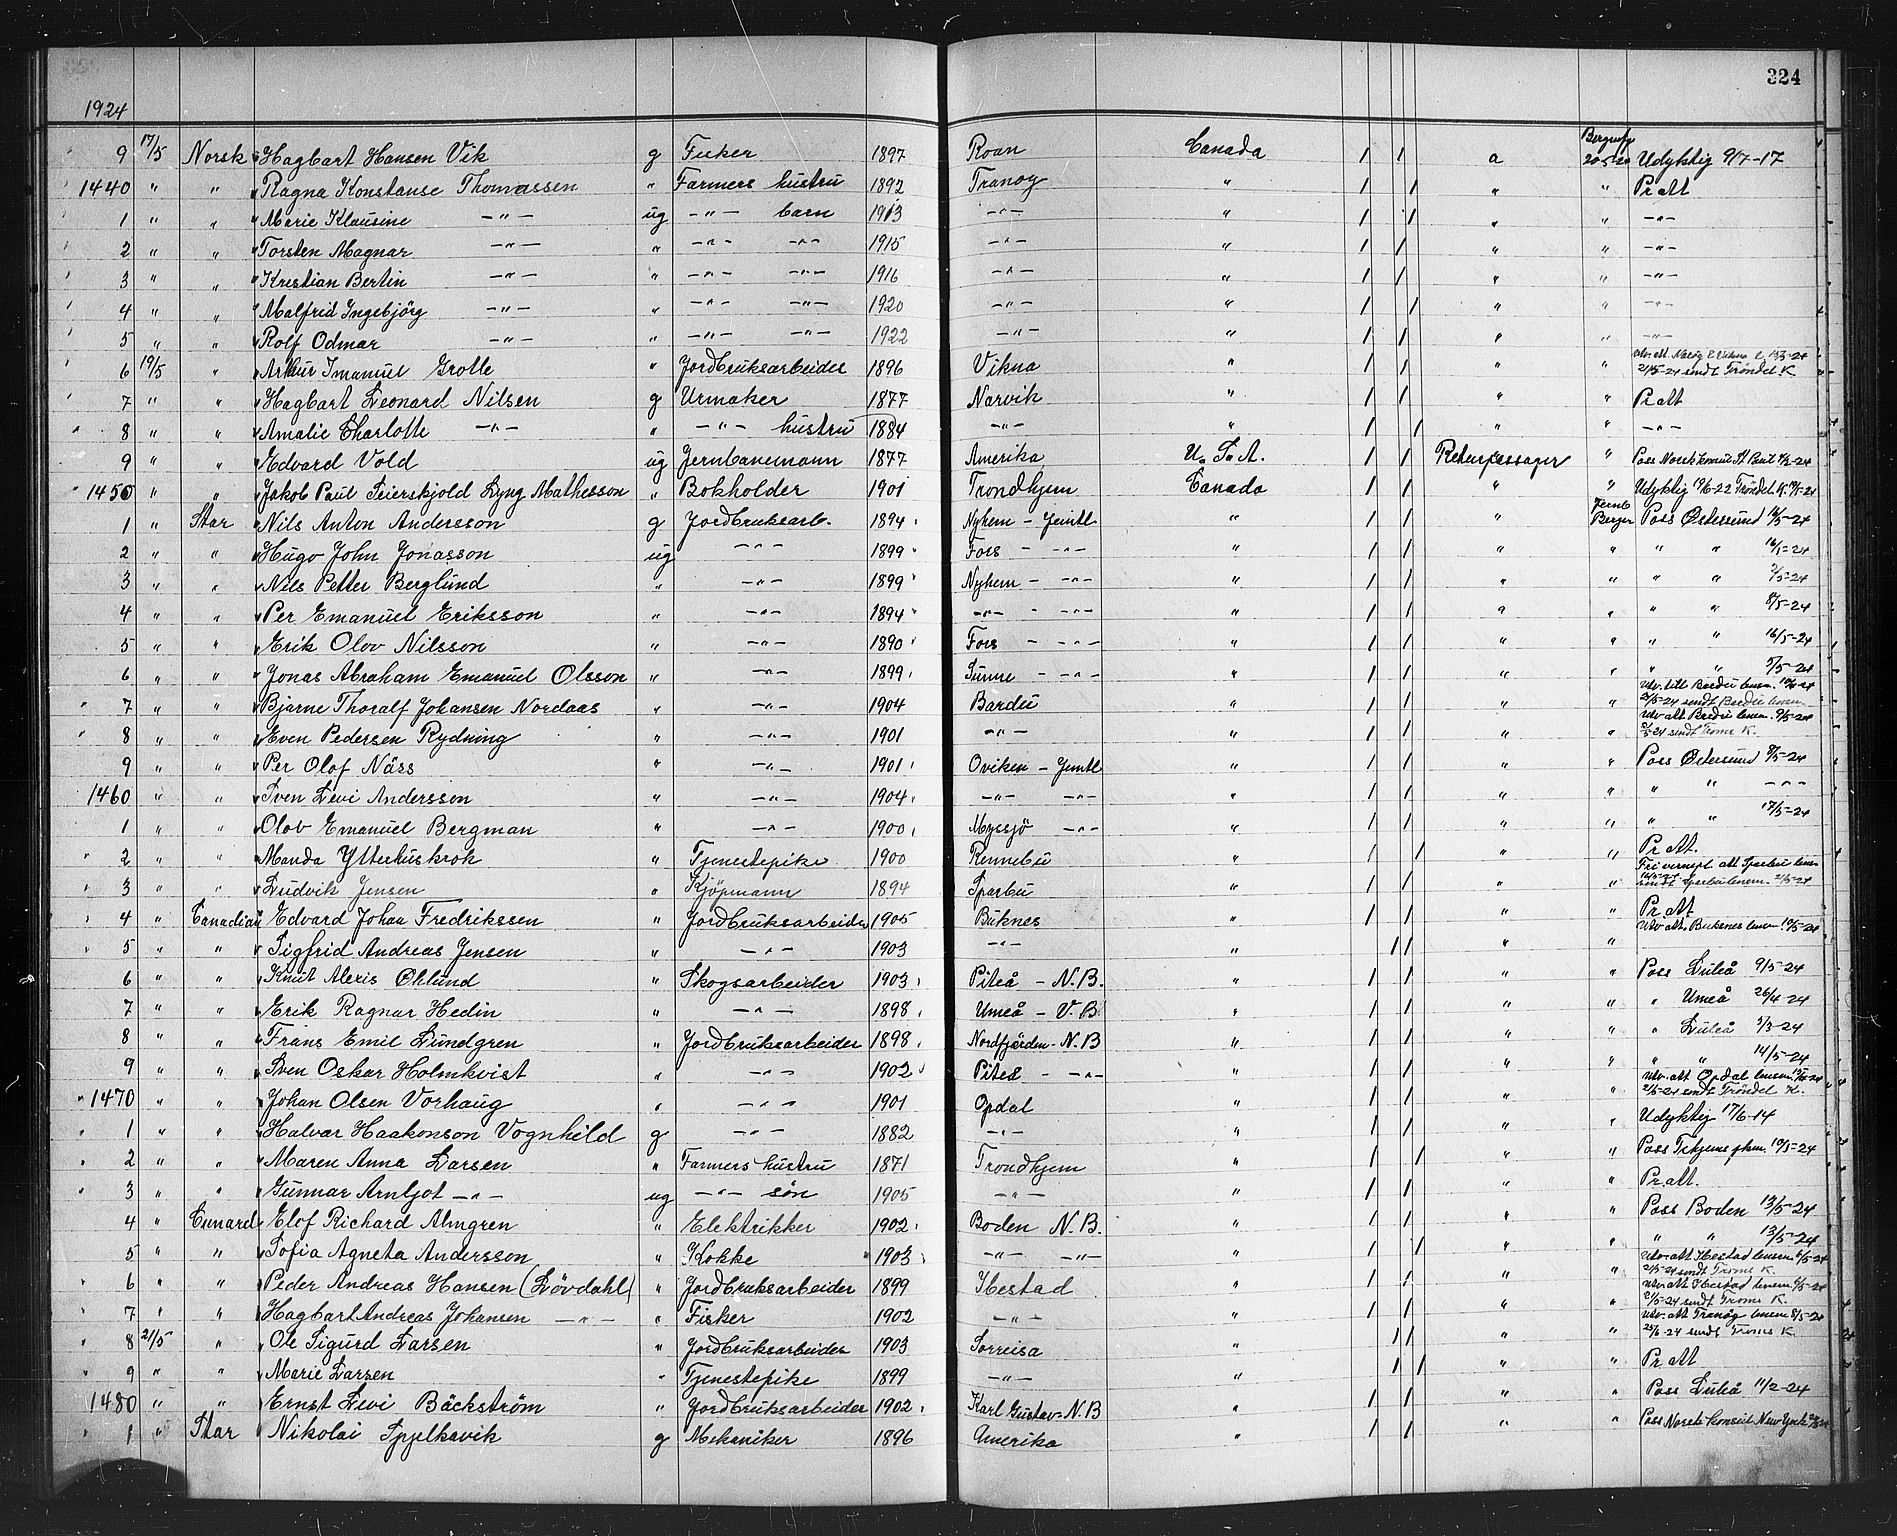 324
1924
9 17/5 Norsk Hagbart Hansen Vik g Fisker 1897 Roan Canada / / a Bergensfj 20-5-24 Udyktig 9/7-17
1440 " " Ragna Konstanse Thomassen " Farmers hustru 1892 Tranøy " / / " " Pr att
1 " " Marie Klausine -"- ug -"- barn 1913 -"- " / / " " -"-
2 " " Torsten Magnar -"- " -"- -"- 1915 -"- " / / " " -"-
3 " " Kristian Bertin -"- " -"- -"- 1916 -"- " / / " " -"-
4 " " Malfrid Ingebjörg -"- " -"- -"- 1920 -"- " / / " " -"-
5 " " Rolf Odmar -"- " -"- -"- 1922 -"- " / / " " -"-
6 19/5 " Arthur Imanuel Grotte " Jordbruksarbeider 1896 Vikna " / / " " 21/5-24 sendt Trøndel K
7 " " Hagbart Leonard Nilsen g Urmaker 1877 Narvik " / / " " Pr att
8 " " Amalie Charlotte -"- " -"- hustru 1884 -"- " / / " " -"-
9 " " Edvard Vold ug Jernbanemann 1877 Amerika U. S. A. / / Returpassager " Pass Norsk konsul
1450 " " Jakob Paul Feierskjold Lyng Mathesson " Bokholder 1901 Trondhjem Canada / / " " Udyktig 19/6-22 Trøndel. K. 19/5-24
1 " Star Nils Anton Andersson g Jordbruksarb. 1894 Nyhem - Jemtl " / / " Jernb Berger Pass Østersund 12/5-24
2 " " Hugo John Jonasson ug -"- 1899 Fors - -"- " / / " " " " 16/1-24
3 " " Nils Petter Berglund " -"- 1899 Nyhem - -"- " / / " " " " 7/5-24
4 " " Per Emanuel Eriksson " -"- 1894 -"- - -"- " / / " " " " 8/5-24
5 " " Erik Olov Nilsson " -"- 1890 Fors - -"- " / / " " " " 16/5-24
6 " " Jonas Abraham Emanuel Olsson " -"- 1899 Sunne - -"- " / / " " " " 5/5-24
7 " " Bjarne Thoralf Johansen Nordaas " -"- 1904 Bardu " / / " " Utv. att Bardu lensm. 21/5-24 sendt Bardu lensm.
8 " " Even Pedersen Rydning " -"- 1901 -"- " / / " " Utv att Bardu lensm. 9/5-24 sendt Troms K.
9 " " Per Olof Näss " -"- 1901 Oviken - Jemtl " / / " " Pass Østersund 8/5-24
1460 " " Sven Levi Andersson " -"- 1904 -"- -"- " / / " " " " -"-
1 " " Olov Emanuel Bergman " -"- 1900 Myssjö -"- " / / " " " " 17/5-24
2 " " Manda Ytterhuskrok " Tjenestepike 1900 Rennebu " / / " " Pr att.
3 " " Ludvik Jensen " Kjöpmann 1894 Sparbu " / / " " Fri vernept att Sparbu lensm sendt Sparbu lensm. 21/5-24
4 " Canadian Edvard Johan Fredrikssen " Jordbruksarbeider 1905 Buknes " / / " " Pr att
5 " " Sigfrid Andreas Jensen " -"- 1903 -"- " / / " " Utv att. Buksnes lensm. 10/5-24
6 " " Knut Alexis Öhlund " Skogsarbeider 1903 Piteå - N.B. " / / " " Pass Luleå 9/5-24
7 " " Erik Ragnar Hedin " -"- 1898 Umeå - V.B. " / / " " " Umeå 26/4-24
8 " " Frans Emil Lundgren " Jordbruksarbeider 1898 Nordfjärden - N.B " / / " " " Luleå 5/3-24
9 " " Sven Oskar Holmkvist " -"- 1902 Piteå - -"- " / / " " " " 14/5-24
1470 " " Johan Olsen Vorhaug " -"- 1901 Opdal " / / " " Utv. att Opdal lensm 21/5-24 sendt Trøndel K.
1 " " Halvar Haakonson Vognhild g -"- 1882 -"- " / / " " Udyktig 17/6-14
2 " " Maren Anna Larsen " Farmers hustru 1871 Trondhjem " / / " " Pass 19/5-24
3 " " Gunnar Arnljot -"- ug -"- søn 1905 -"- " / / " " Pr. att.
4 " Cunard Elof Richard Almgren " Elektrikker 1902 Boden N.B. " / / " " Pass Boden 13/5-24
5 " " Sofia Agneta Andersson " Kokke 1903 -"- -"- " / / " " " " 13/5-24
6 " " Peder Andreas Hansen (Lövdahl) " Jordbruksarbeider 1899 Ibestad " / / " " Utv. att Ibestad lensm 6/5-24 21/5-24 sendt Troms K.
7 " " Hagbart Andreas Johansen -"- " Fisker 1902 -"- " / / " " Utv. att Ibestad lensm 6/5-24 21/5-24 sendt Troms K.
8 21/5 " Ole Sigurd Larsen " Jordbruksarbeider 1903 Sorreisa " / / " " Utv. att Tranøy lensm 8/5-24 sendt Troms K.
9 " " Marie Larsen " Tjenestepike 1899 -"- " / / " " Pr att
1480 " " Ernst Levi Bäckström " Jordbruksarbeider 1902 Karl Gustav - N.B " / / " " Pass Luleå 11/2-24
1 " Star Nikolai Spjelkavik g Mekaniker 1896 Amerika " / / " " Pass Norsk konsul New York